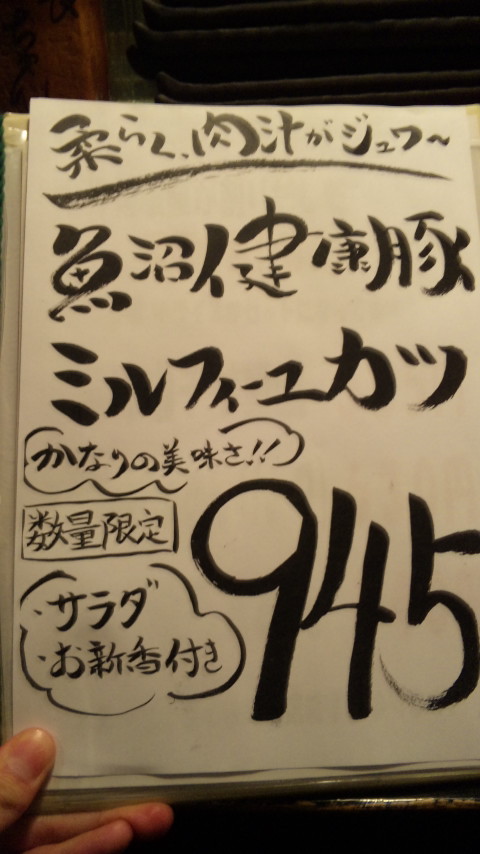 柔らく、肉汁がジュワ〜
魚沼健康豚
ミルフィーユカツ
かなりの美味さ!!
数量限定
945
・サラダ
・お新香付き